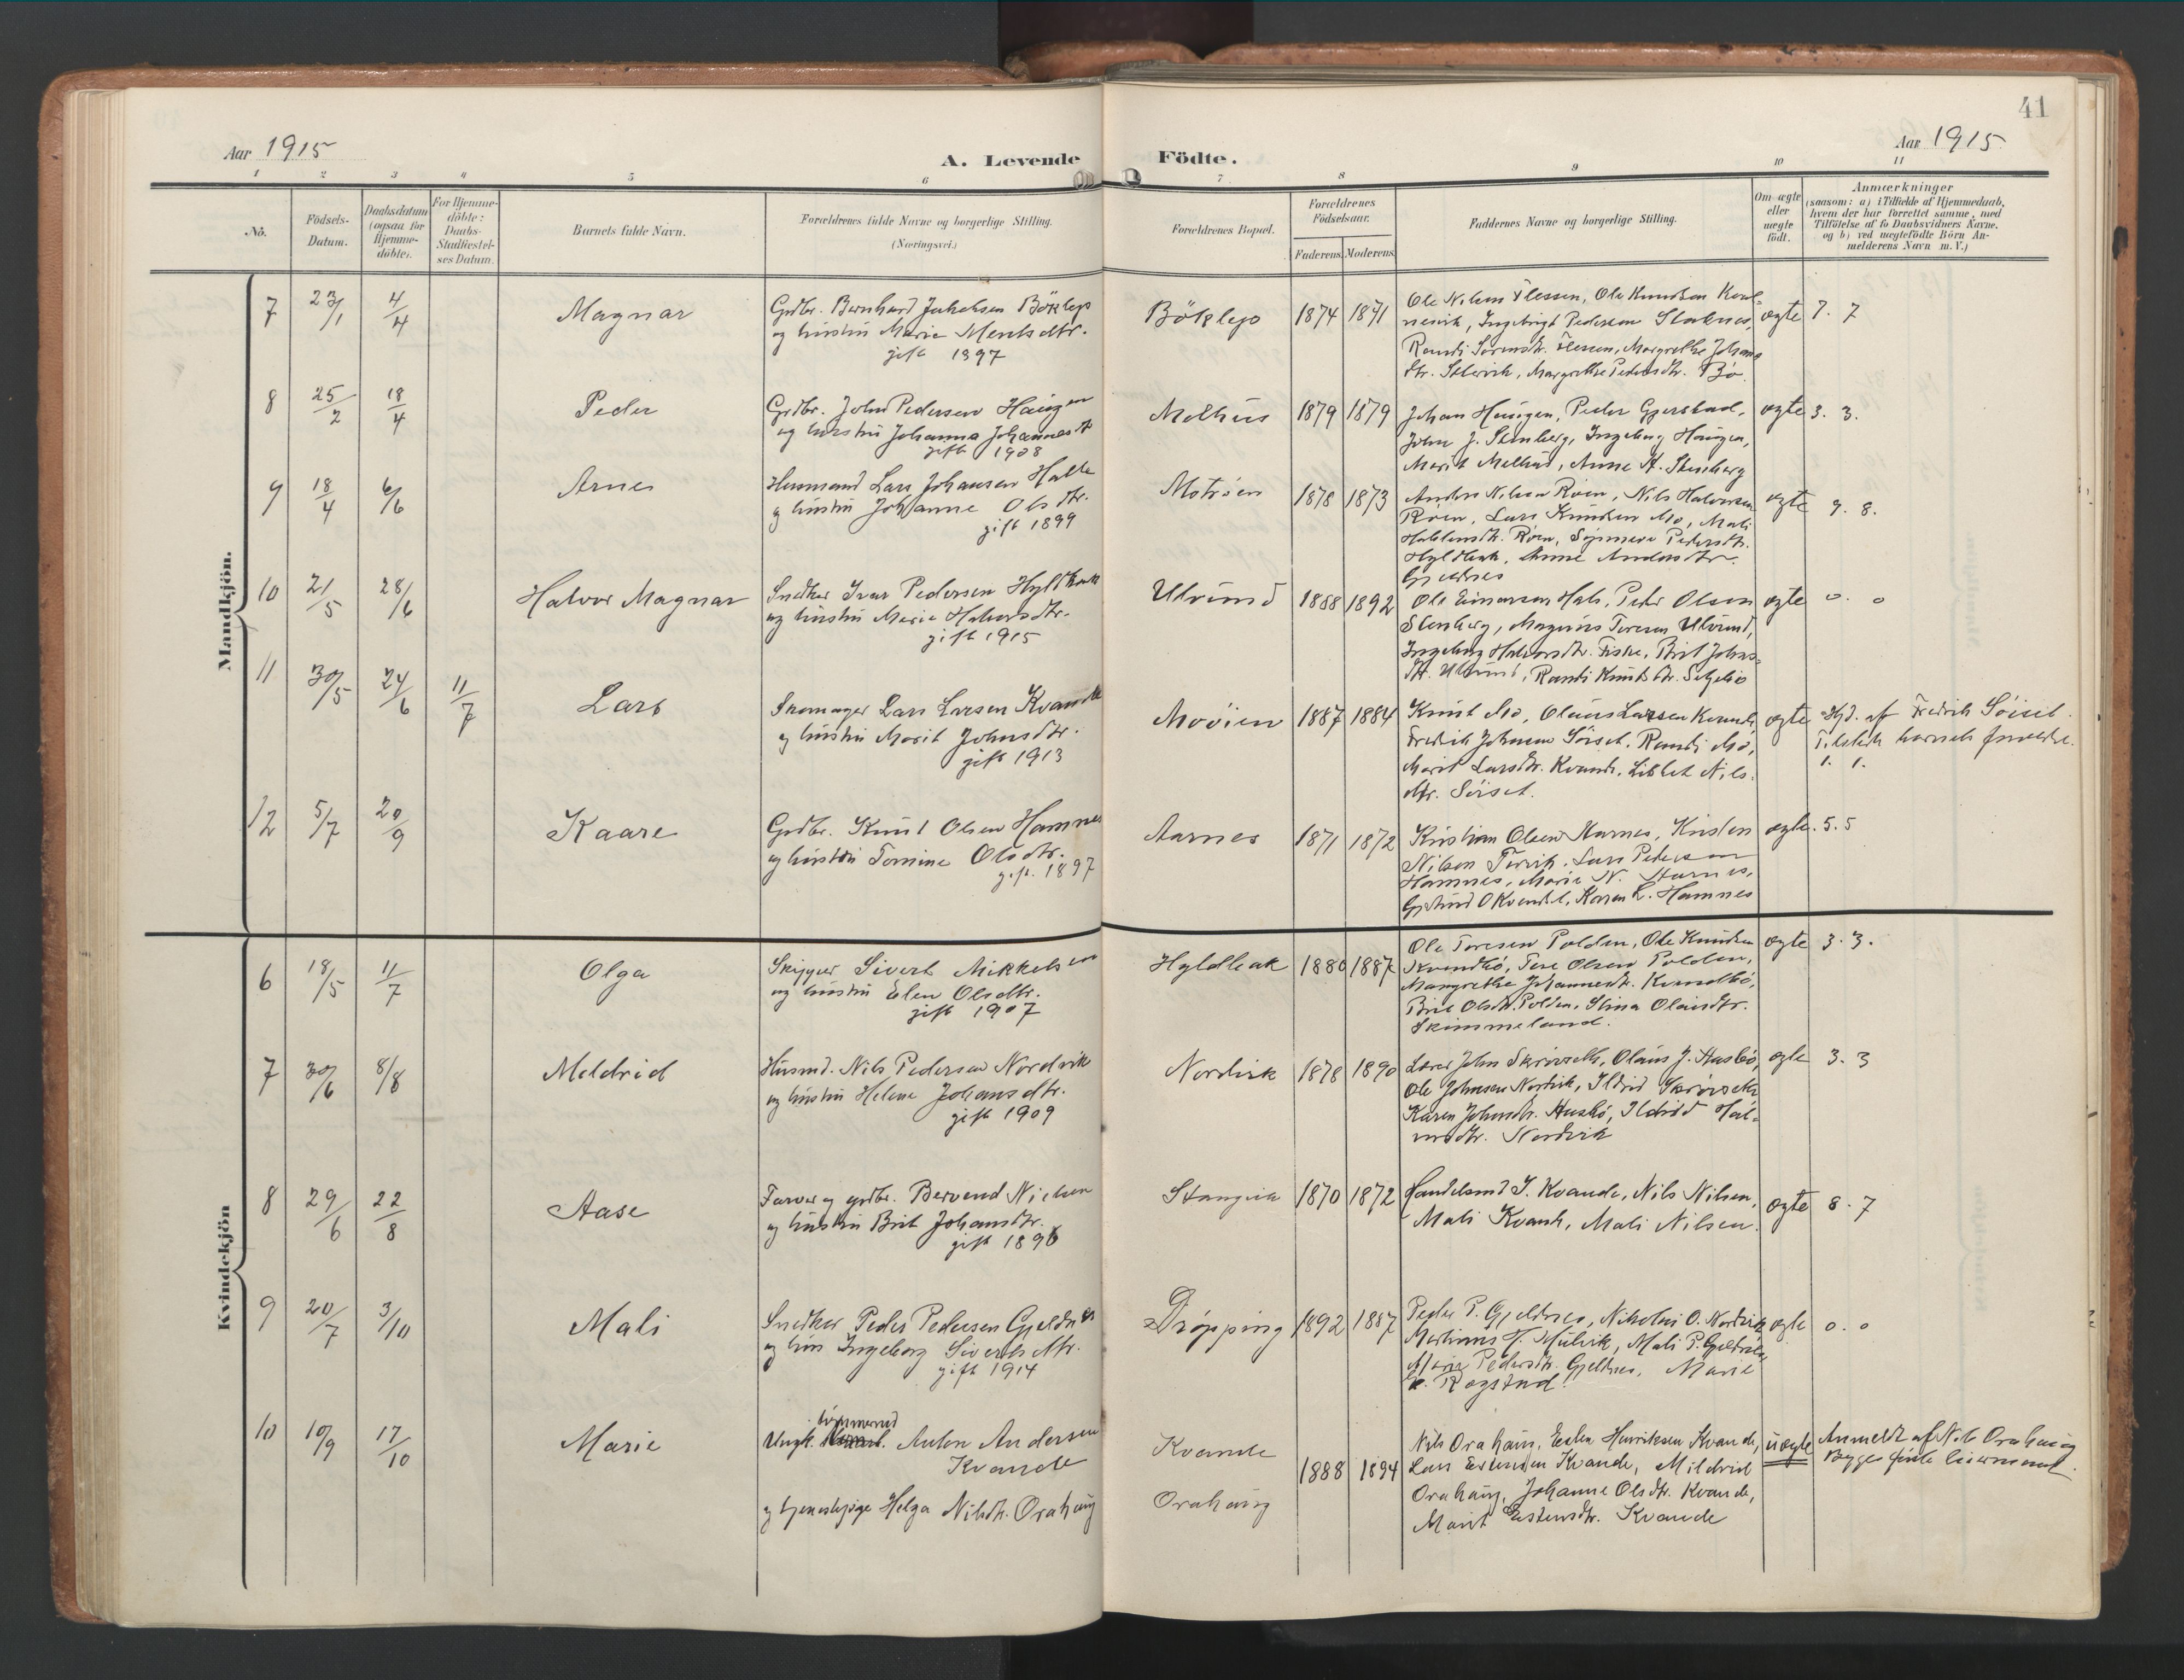 41
Aar 1915
A. Levende Födte.
Aar 1915
1 2 3 4 5 6 7 8 9 10 11
No.
Födsels-
Datum.
Daabsdatum
(ogsaa for
Hjemme-
döbte).
For Hjemme-
döbte:
Daabs-
Stadfæstel-
ses Datum.
Barnets fulde Navn.
Forældrenes fulde Navne og borgerlige Stilling.
(Næringsvei.)
Forældrenes Bopæl.
Forældrenes
Födselsaar.
Faderens. Moderens.
Faddernes Navne og borgerlige Stilling.
Om ægte
eller
uægte
født.
Anmærkninger
(saasom: a) i Tilfælde af Hjemmedaab,
hvem der har forrettet samme, med
Tilföielse af to Daabsvidners Navne,
og b) ved uægtefödte Börn An-
melderens Navn m. V.)
Mandkjön.
7 23/1 4/4 Magnar
Grdbr. Bernhard Jakobsen Böklep
og hustru Marie Mentsdtr.
gift 1897
Böklep 1874 1871
Ole Nilsen Flessen, Ole Knudsen
Ingebrigt Pedersen Stoknes,
Randi Sörensdtr. Flessen, Margrethe Johans
dtr. Margrethe Pedersdtr. Bö.
ægte 7. 7
8 25/2 18/4 Peder
Grdbr. John Pedersen Haugen
og hustru Johanna Johannesdt
gift 1908
Melhus 1879 1879
Johan Haugen, Peder Gjerstad,
John J. Stenberg, Ingeborg Haugen,
Marit Melhus, Anne H. Stenberg
ægte 3. 3.
9 18/4 6/6 Arnes
Husmand Lars Johansen Halle
og hustru Johanne Olsdtr.
gift 1899
Motröen 1878 1873
Anders Nilsen Röen, Nils Halvorsen
Röen, Lars Knudsen Mo, Mali
Röen, Pedersdtr.
Hyldbak, Anne Andersdtr.
Gjeldnes
ægte 9. 8.
10 21/5 28/6 Halvor Magnar
Snedker Ivar Pedersen Hyldbak
og hustru Marie Halvorsdtr.
gift 1915
Ulvund 1888 1892
Ole Einarsen Hals, Peder Olsen
Stenberg, Magnus Toresen Ulvund,
Ingeborg Halvorsdtr. Fiske, Brit Johns-
dt. Ulvund, Randi Knudsdtr.
ægte 0. 0
11 30/5 24/6 11/7 Lars
Skomager Lars Larsen Kvande
og hustru Marit Johnsdtr.
gift 1913
Moöien 1887 1884
Knut Mo, Olaus Larsen Kvande
Fredrik Johnsen Sörset, Randi Mo,
Marit Larsdtr. Kvande, Lisbet Nils-
dtr. Sörset.
ægte Hjd. af Fredrik Sörset.
Tilstede barnets forældre.
1. 1.
12 5/7 20/9 Kaare
Grdbr. Knut Olsen Hamnes
og hustru Tomine Olsdtr.
gift. 1897
Aarnes 1871 1872
Kristian Olsen Aarnes, Kristen
Nilsen Torvik, Lars Pedersen
Hamnes, Marie N. Aarnes,
Gjertrud O Kvendset, Karen L. Hamnes
ægte. 5. 5
Kvindekjön
6 18/5 11/7 Olga
Skipper Sivert Mikkelsen
og hustru Elen Olsdtr.
gift 1907
Hyldbak 1880 1887
Ole Toresen Polden, Ole Knudsen
Kvendbö, Tore Olsen Polden,
Margrethe Johannesdtr. Kvendbö,
Brit Olsdtr. Polden, Stina Olausdtr.
Skimmeland.
ægte 3. 3.
7 30/6 8/8 Meldrid
Husmd. Nils Pedersen Nordvik
og hustru Helene Johansdtr.
gift 1909
Nordvik 1878 1890
Lærer John Skrövseth, Olaus J. Husbö,
Ole Johnsen Nordvik, Ildrid Skrövseth
Karen Johnsdtr. Husbö, Ildrid Hal-
vorsdtr. Nordvik
ægte 3. 3
8 29/6 22/8 Aase
Farver og grdbr. Bervend Nielsen
og hustru Brit Johansdtr.
gift 1896
Stangvik 1870 1872
Handelsmd I. Kvande, Nils Nilsen,
Mali Kvande, Mali Nilsen.
ægte 8. 7
9 20/7 3/10 Mali
Snedker Peder Pedersen Gjeldnes
og hus Ingeborg Sivertsdtr.
gift 1914
Dröpping 1892 1887
Peder P. Gjeldnes, Nikolai O. Nordvik
Martinus H. Mulvik, Mali P. Gjeldnes
Marie Pedersdtr. Gjeldnes, Marie
Rogstad.
ægte 0. 0
10 10/9 17/10 Marie
tömmermd
Ungk. Anton Andersen
Kvande
og tjenestepige Helga Nilsdtr. Orahaug
Kvande
Orahaug
1888 1894
Nils Orahaug, Esten Henriksen Kvande,
Lars Estensen Kvande, Mildrid
Orahaug, Johanne Olsdtr. Kvande,
Marit Estensdtr. Kvande
uægte Anmeldt af Nils Orahaug
Begges förste leiermaal.